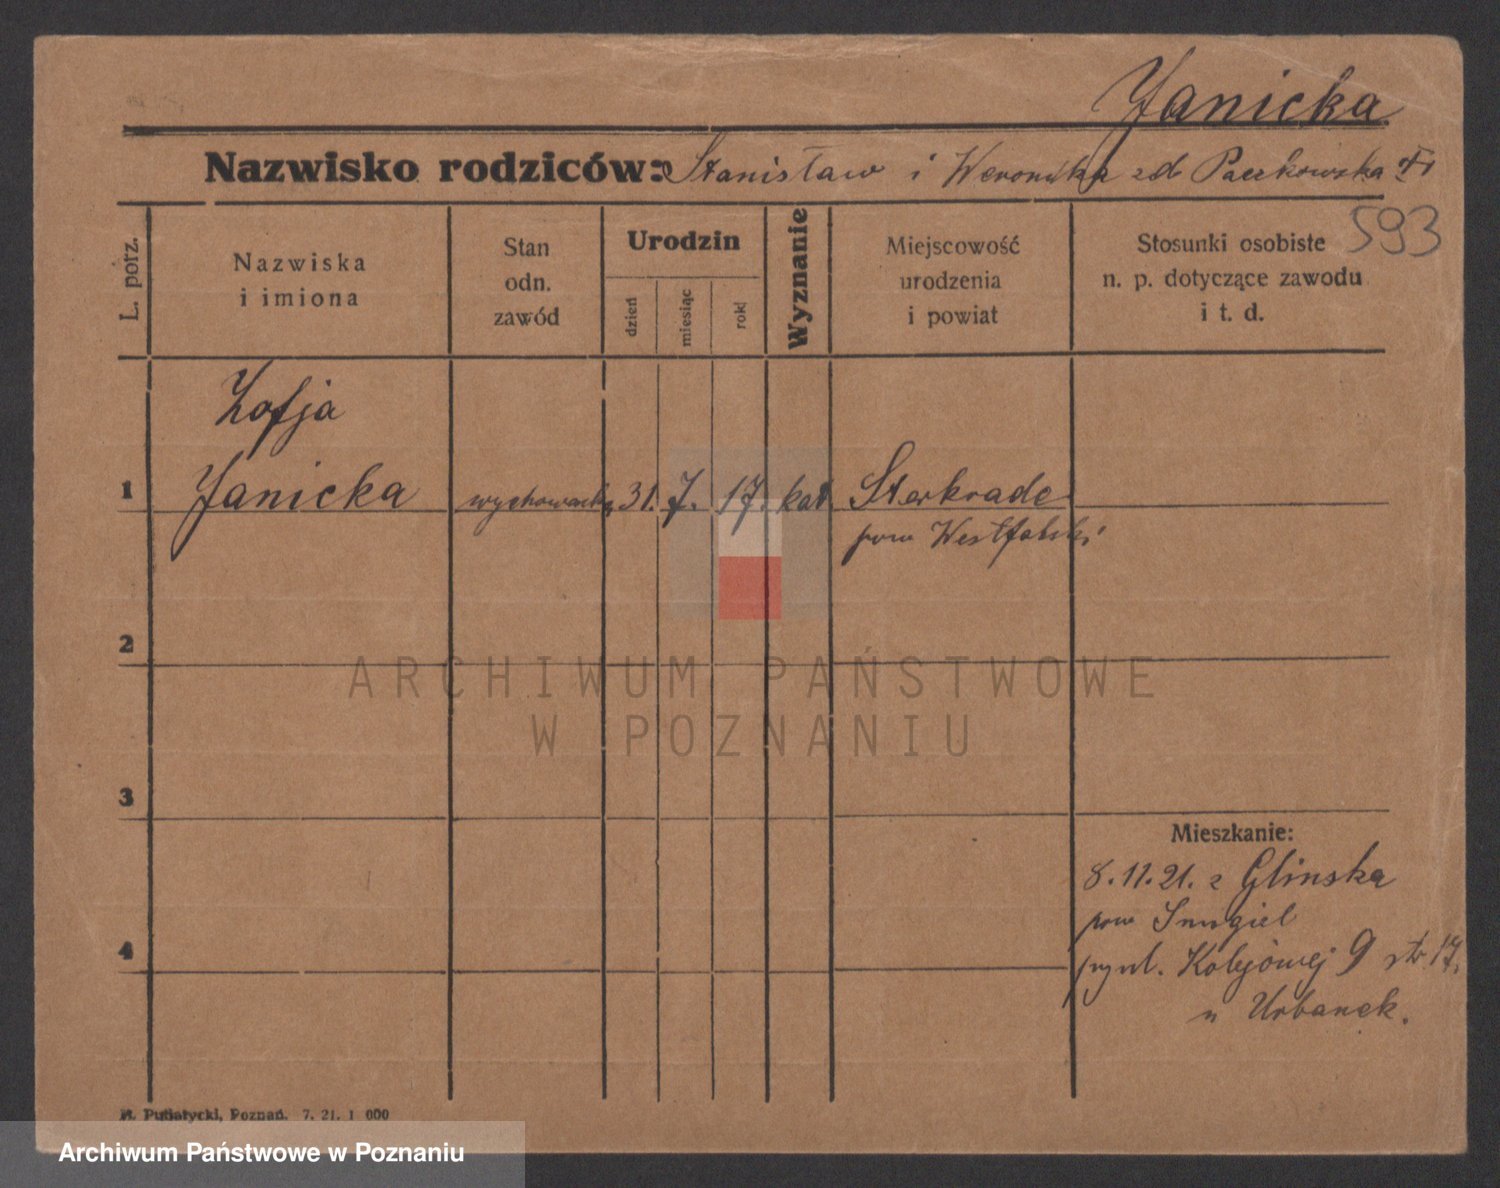 Janicka
Nazwisko rodziców: Stanisław i Weronika zd Paczkowska
593
L. porz.
Nazwiska
i imiona
Stan
odn.
zawód
Urodzin
dzień
miesiąc
rok
Wyznanie
Miejscowość
urodzenia
i powiat
Stosunki osobiste
n. p. dotyczące zawodu
i t. d.
Zofja
1 Janicka wychowanka 31. 7. 17. kat. Sterkrade
pow Westfalski
2
3
4
Mieszkanie:
8.11.21. z Glinska
pow Smigiel
przyul. Kolejowej 9 str 17.
u Urbanek.
ARCHIWUM PAŃSTWOWE
W POZNANIU
Putiatycki, Poznań. 7. 21. 1 000
Archiwum Państwowe w Poznaniu